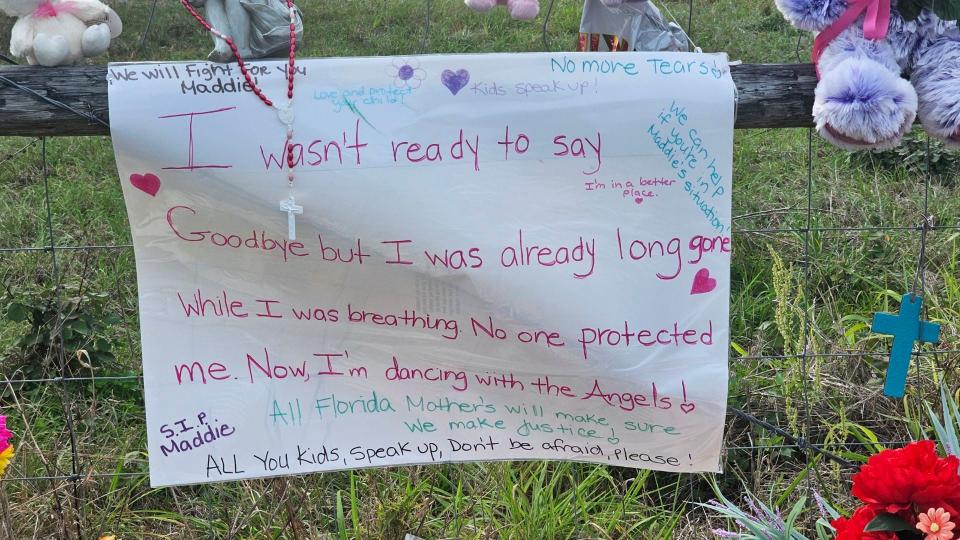 We will Fight For You
Maddie!
Love and protect
your child!
Kids speak up!
No more Tears
I wasn't ready to say
I'm in a better
place.
We can help
if you're in
Maddie's situation!
Goodbye but I was already long gone
While I was breathing. No one protected
me. Now, I'm dancing with the Angels!
All Florida Mother's will make, sure
We make justice!
S.I.P.
Maddie
ALL You Kids, Speak up, Don't be afraid, Please!